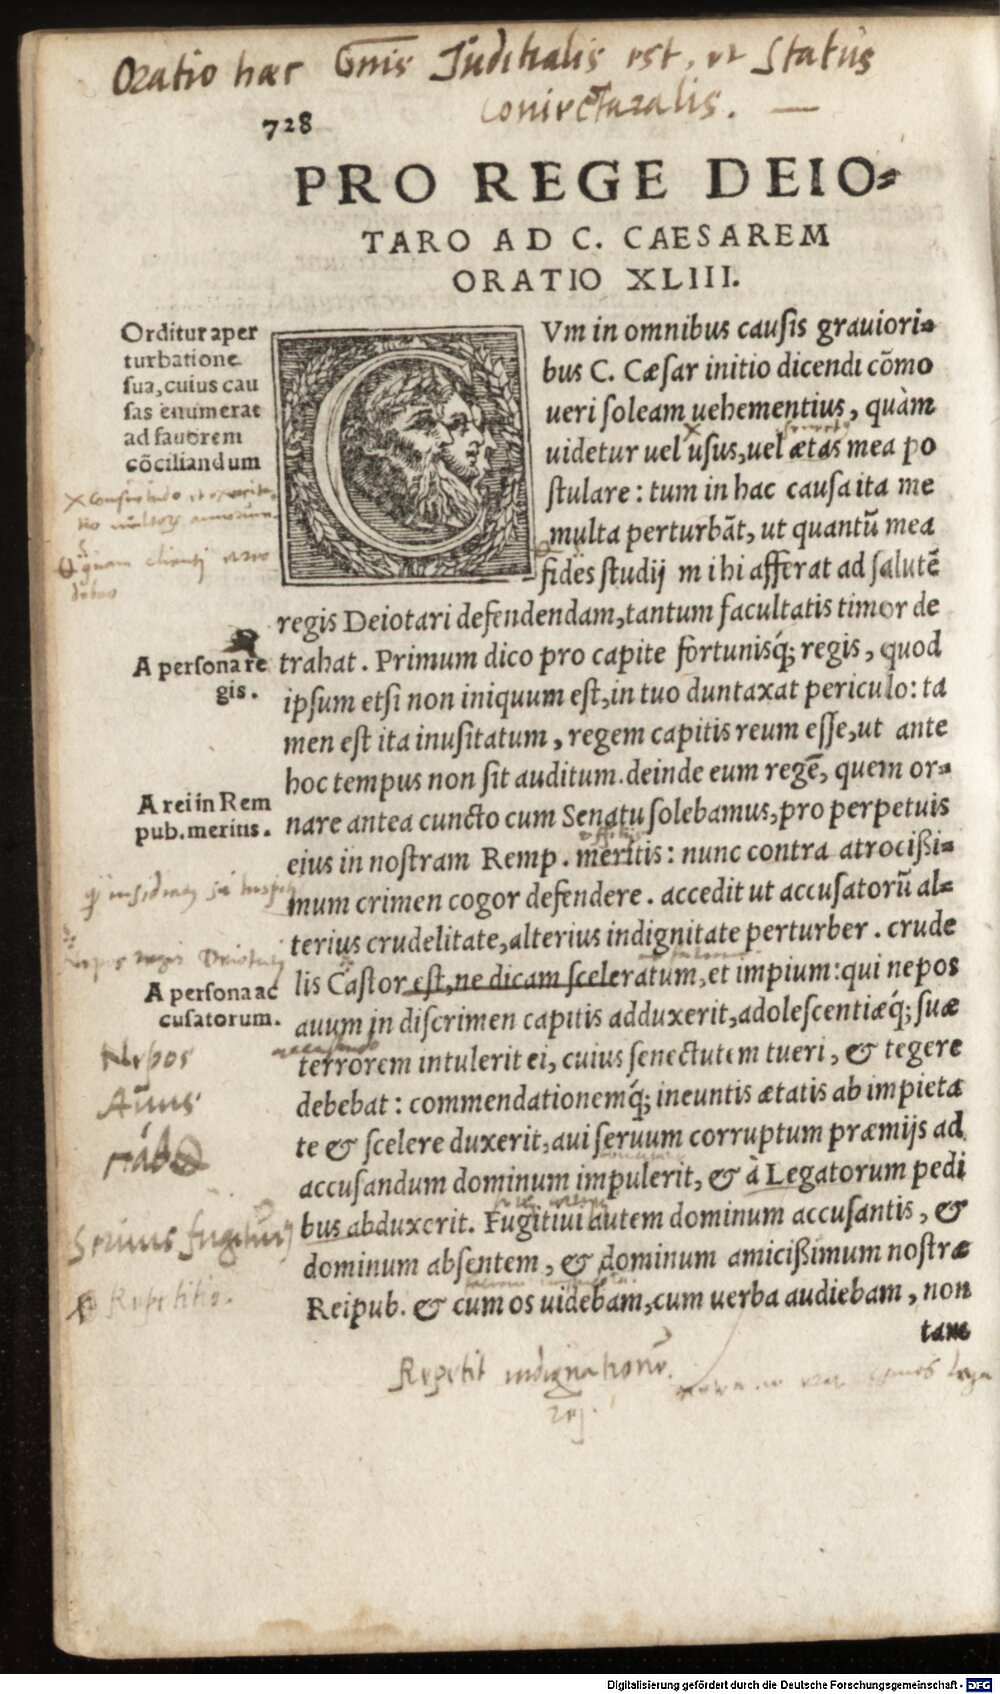 Oratio haec Gñis Juditialis est, et Status
Coniecturalis.
728
PRO REGE DEIO⸗
TARO AD C. CAESAREM
ORATIO XLIII.
Orditur a per
turbatione
sua, cuius cau
sas enumerat
ad fauorem
cōciliandum
CVm in omnibus causis grauiori⸗
bus C. Cæsar initio dicendi cōmo
ueri soleam uehementius, quàm
uidetur uel usus, uel ætas mea po
stulare: tum in hac causa ita me
multa perturbāt, ut quantū mea
fides studij mihi afferat ad salutē
regis Deiotari defendendam, tantum facultatis timor de
trahat. Primum dico pro capite fortunisq́; regis, quod
ipsum etsi non iniquum est, in tuo duntaxat periculo: ta
men est ita inusitatum, regem capitis reum esse, ut ante
hoc tempus non sit auditum. deinde eum regē, quem or⸗
nare antea cuncto cum Senatu solebamus, pro perpetuis
eius in nostram Remp. meritis: nunc contra atrocißi⸗
mum crimen cogor defendere. accedit ut accusatorū al⸗
terius crudelitate, alterius indignitate perturber. crude
lis Castor est, ne dicam sceleratum, et impium: qui nepos
auum in discrimen capitis adduxerit, adolescentiæq́; suæ
terrorem intulerit ei, cuius senectutem tueri, & tegere
debebat: commendationemq́; ineuntis ætatis ab impieta
te & scelere duxerit, aui seruum corruptum præmijs ad
accusandum dominum impulerit, & à Legatorum pedi
bus abduxerit. Fugitiui autem dominum accusantis, &
dominum absentem, & dominum amicißimum nostræ
Reipub. & cum os uidebam, cum uerba audiebam, non
tam
A persona re
gis.
A rei in Rem
pub. meritis.
Nepos regis Deiotari
A persona ac
cusatorum.
Nepos
Auus
Seruus fugitiuus
Repetitio.
Repetit indignationē
Digitalisierung gefördert durch die Deutsche Forschungsgemeinschaft - DFG